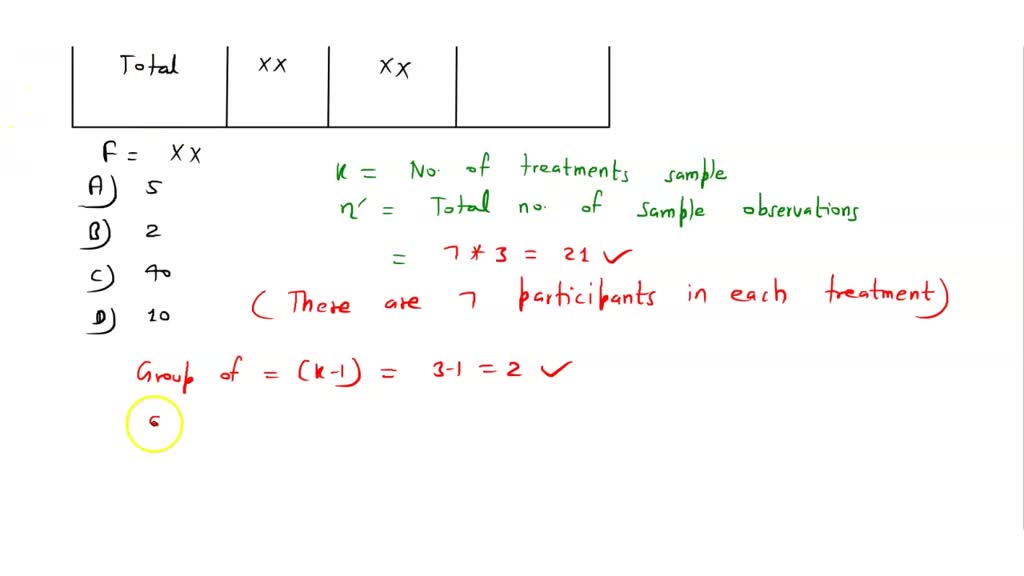 Total xx xx
F = xx
A) 5
B) 2
C) 40
D) 10
K = No. of treatments sample
n' = Total no. of sample observations
= 7 * 3 = 21 ✓
(There are 7 participants in each treatment)
Group of = (k-1) = 3-1 = 2 ✓
G